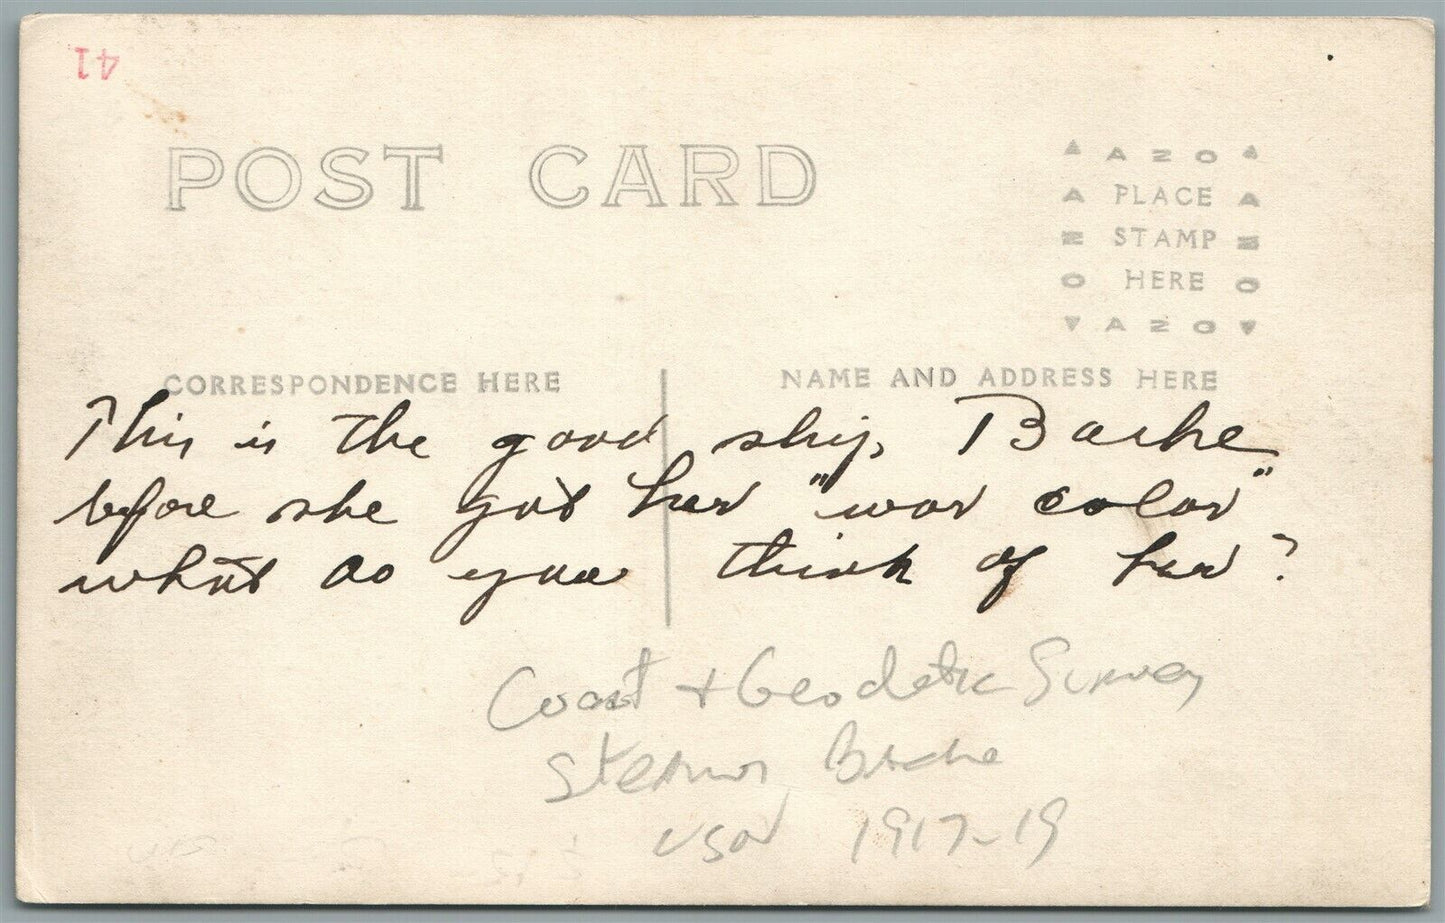 41
POST CARD
AZO
PLACE
STAMP
HERE
AZO
CORRESPONDENCE HERE
NAME AND ADDRESS HERE
This is the good ship, Bache
before she got her "war color"
what do you think of her?
Coast + Geodetic Survey
Steamer Bache
USN 1917-19